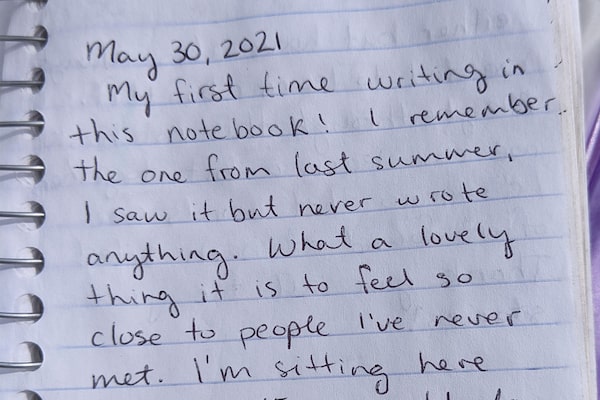 May 30, 2021
My first time writing in
this notebook! I remember
the one from last summer,
I saw it but never wrote
anything. What a lovely
thing it is to feel so
close to people I've never
met. I'm sitting here